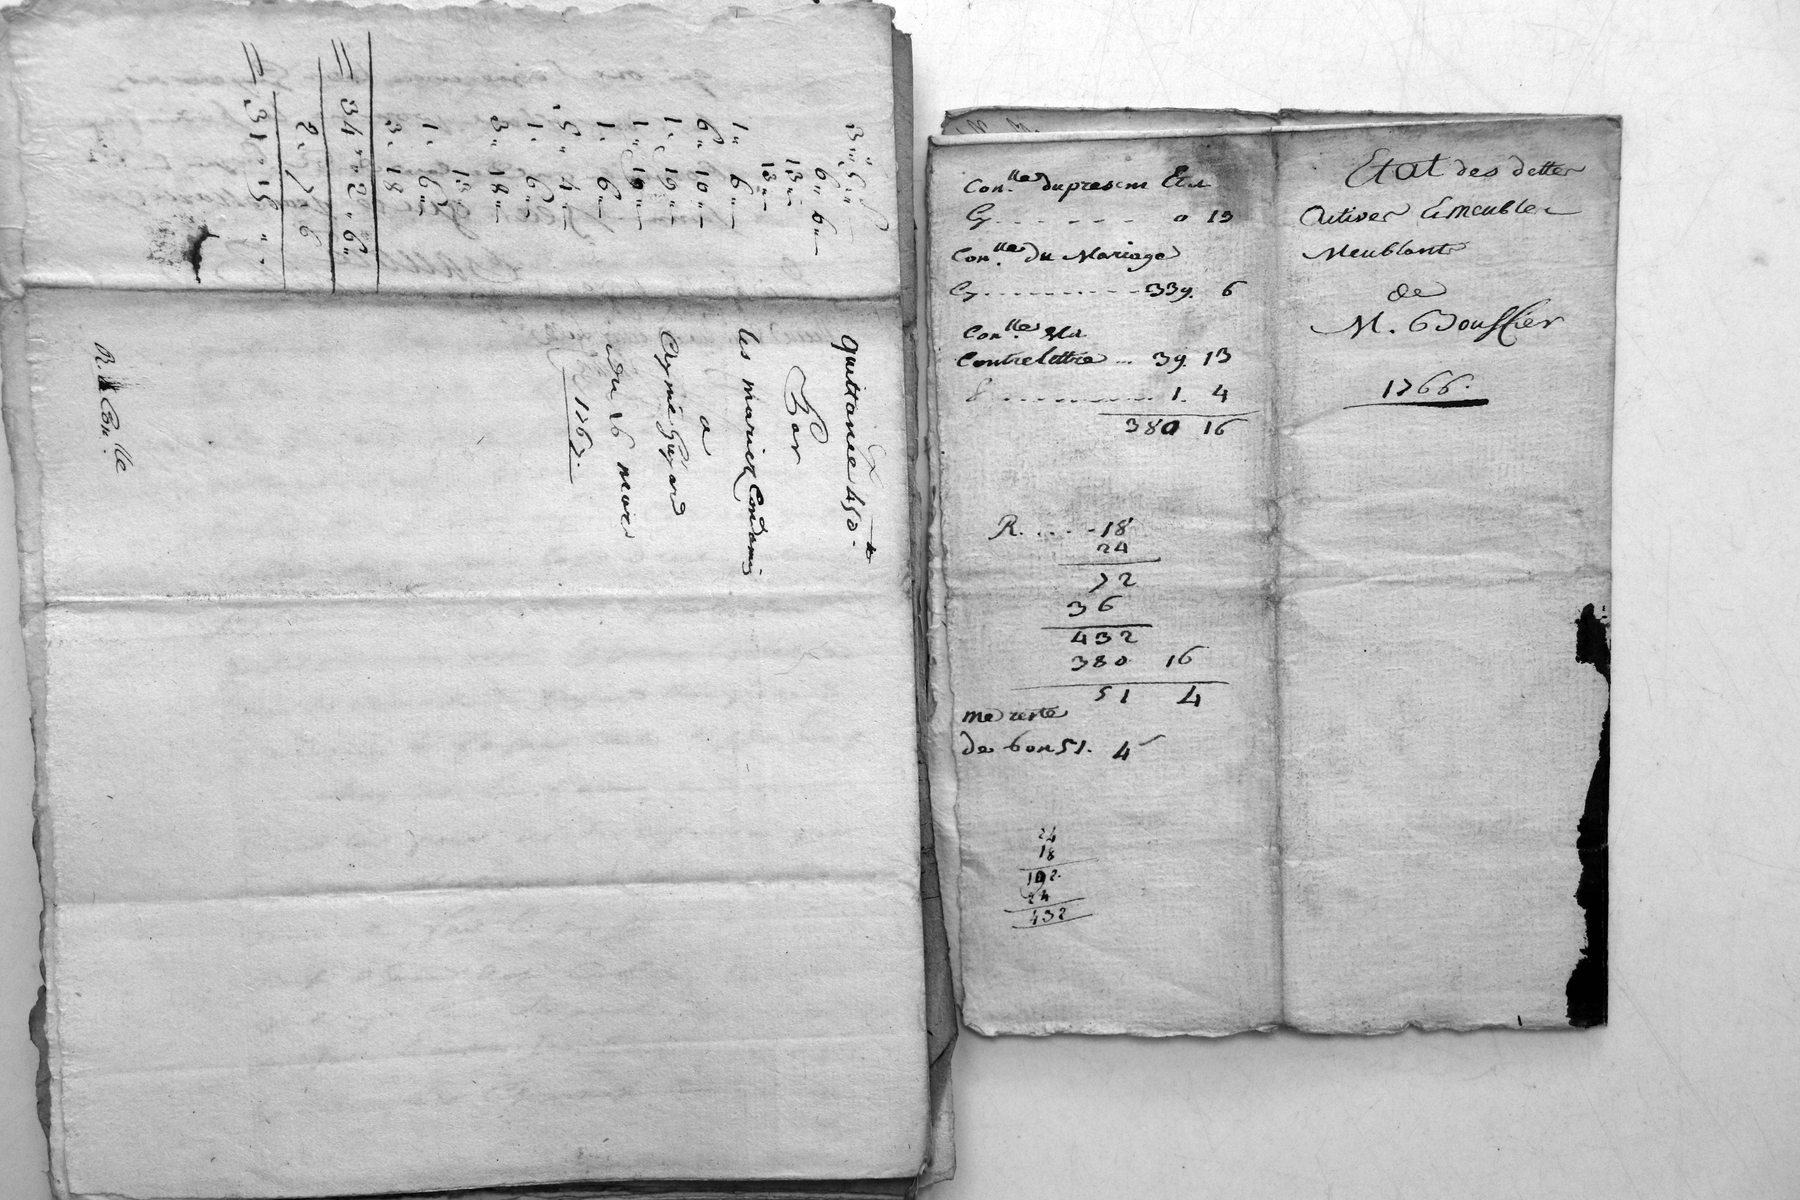 3 " 5 "
6 " 6 "
13 "
13 "
1 " 6 "
6 " 10 "
1 . 19 "
1 " 10 "
1 . 6 "
5 " 4 "
1 . 6 "
3 " 18 "
13
1 . 6 "
3 . 18
34 " 2 " 6 "
2 . 7 6
31 " 15 "
quittance 450 tt
Par
les mariez Condamin
a
Aymé Guyard
du 16 mars
1767.
R. Con.lle
Con.lle du present Etat
C. . . . . . . . 0 13
Con.lle du Mariage
C. . . . . . . . 339. 6
Con.lle Ma
Contrelettre ... 39. 13
. . . . . . . . 1. 4
380 16
R. . . . . 18
24
72
36
432
380 16
51 4
me reste
de bon 51. 4
24
18
192
24
432
Etat des dettes
Actives & meubles
Meublants
de
M. Boussier
1766.